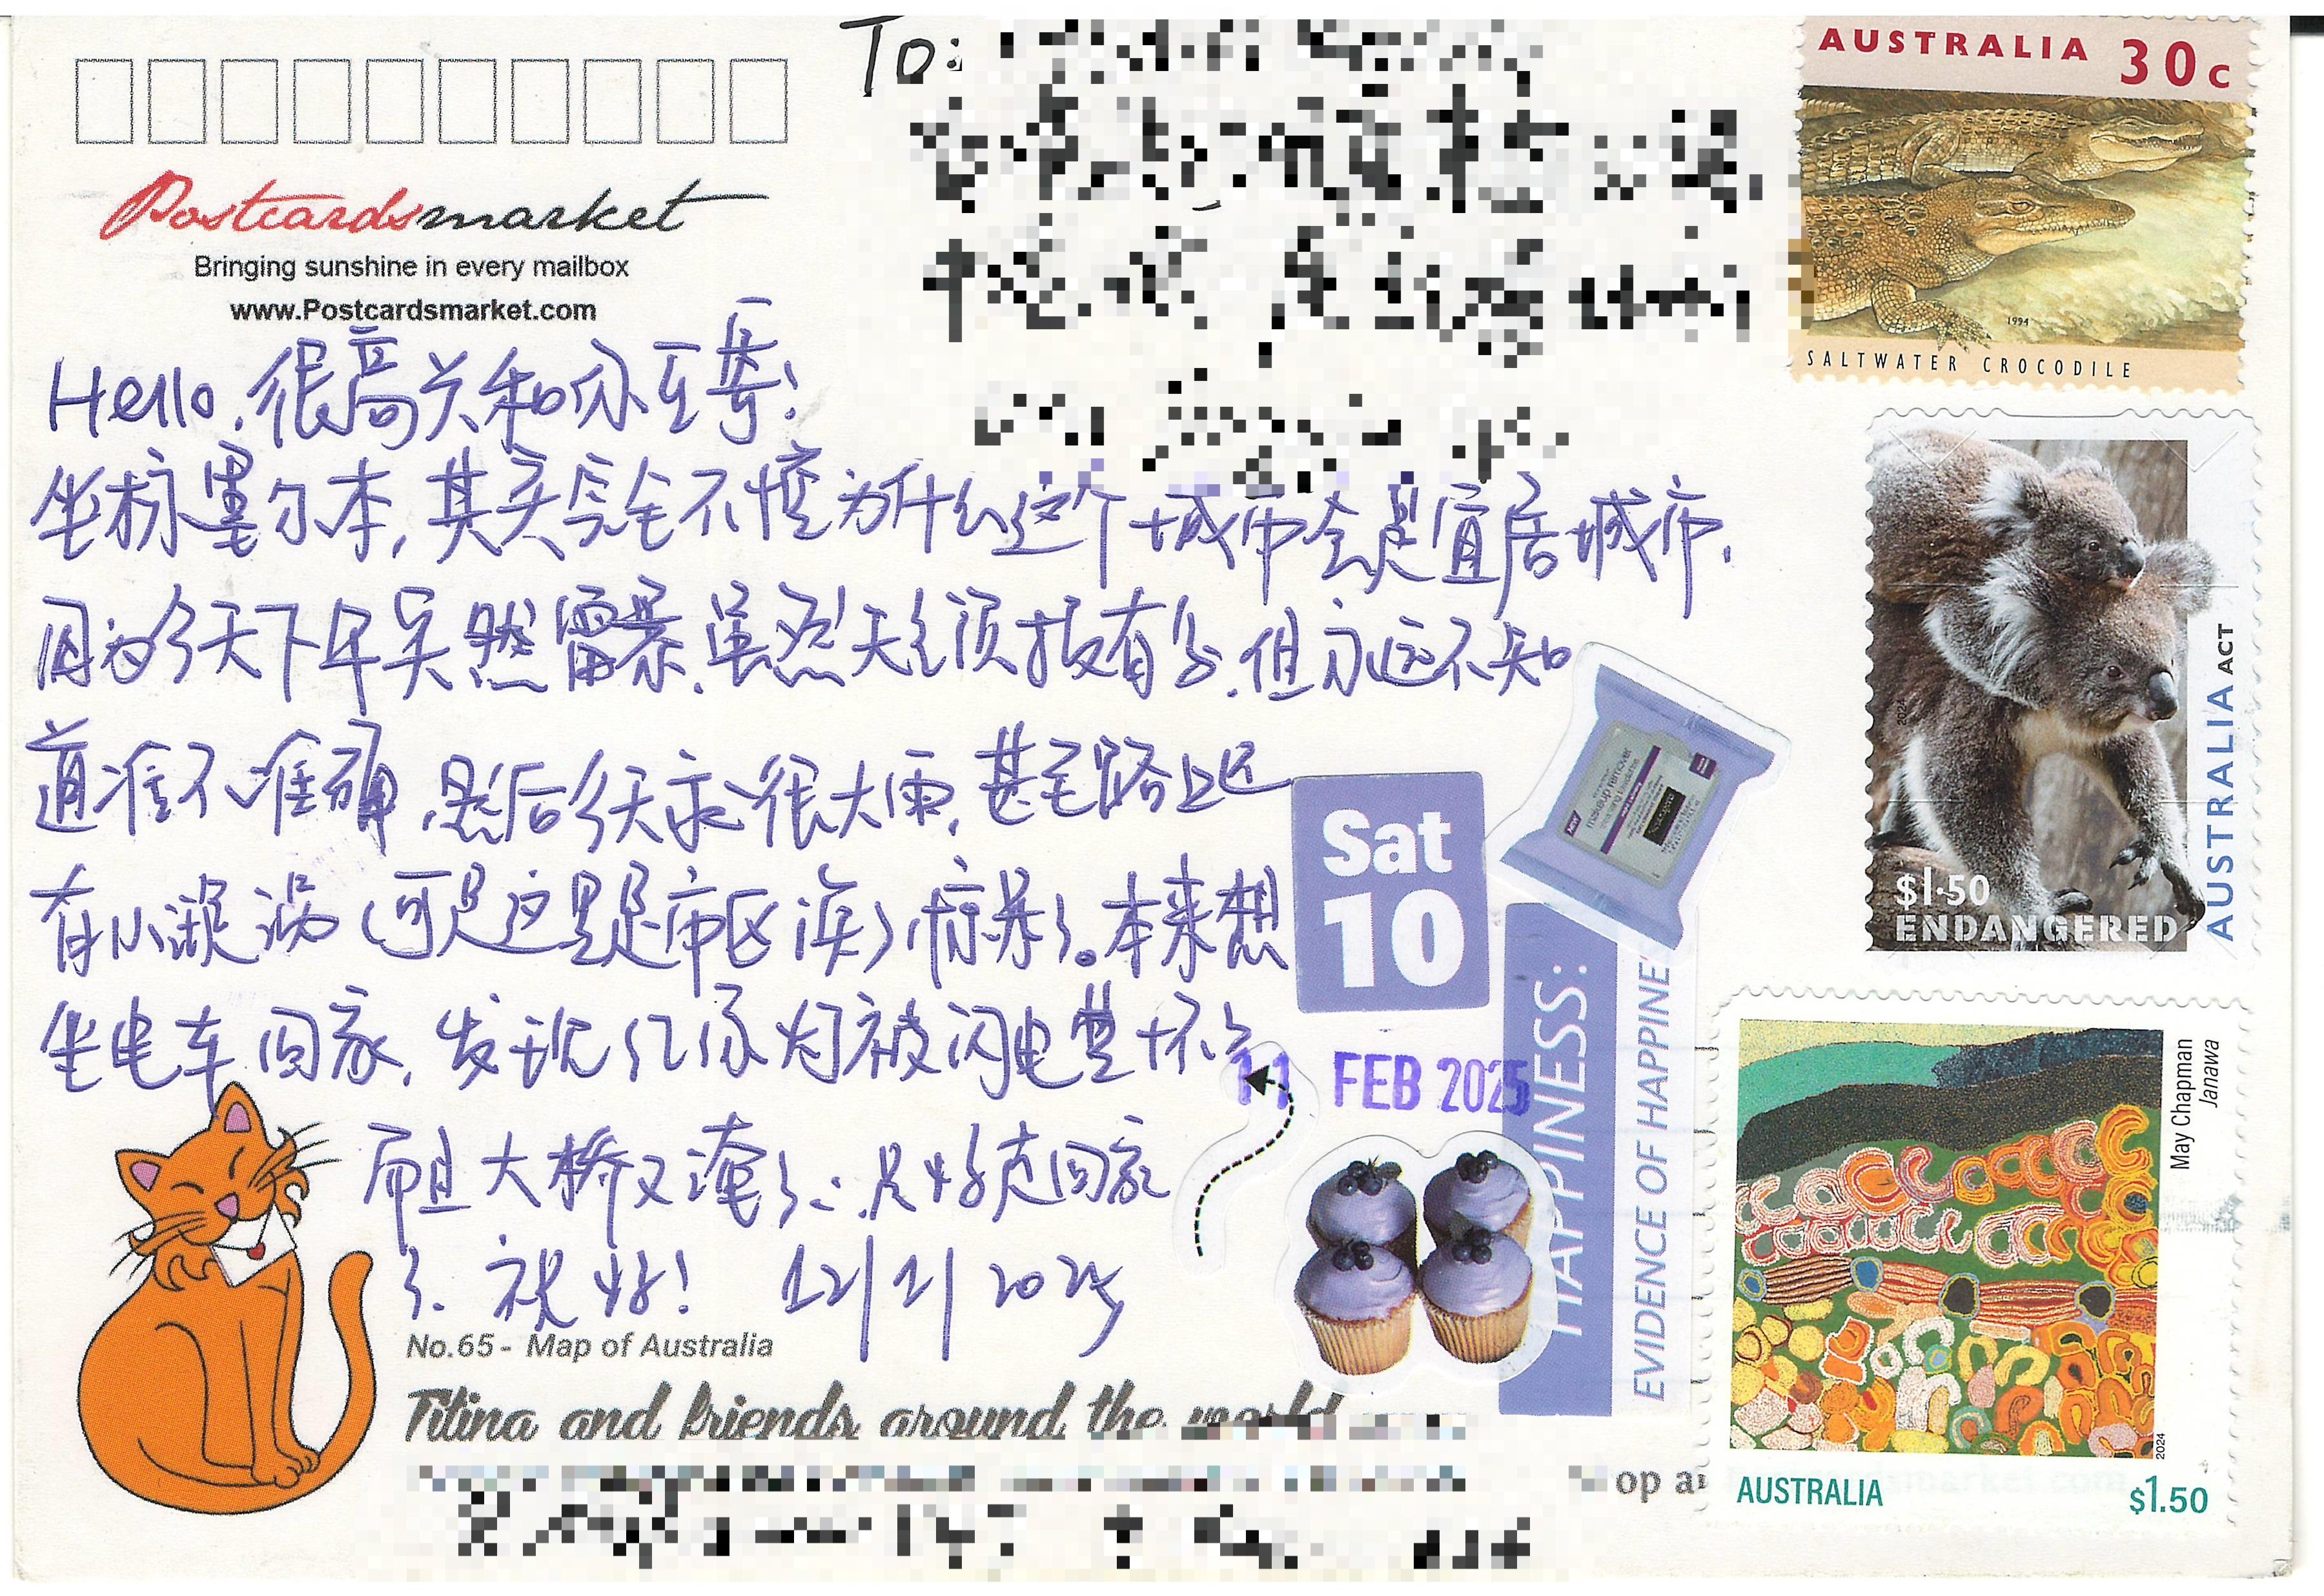 To:
AUSTRALIA 30c
1994
SALTWATER CROCODILE
Postcardsmarket
Bringing sunshine in every mailbox
www.Postcardsmarket.com
Hello.很高兴和你互寄!
坐标墨尔本,其实完全不懂为什么这个城市会是宜居城市.
因为今天下午突然雷暴.虽然天气预报有说.但永远不知
道准不准确.然后今天就很大雨,甚至路上还
有小瀑布(可是这里是市区诶)惊呆了。本来想
坐电车回家.发现红绿灯被闪电劈坏了
而且大桥又淹了..只好走回家
了.祝好! 12/1/2025
2024
$1.50
ENDANGERED
AUSTRALIA ACT
makeup remover
cleansing towelettes
Sat
10
11 FEB 2025
HAPPINESS:
EVIDENCE OF HAPPINE
May Chapman
Janawa
2024
AUSTRALIA
$1.50
No.65 - Map of Australia
Titina and friends around the world
op a